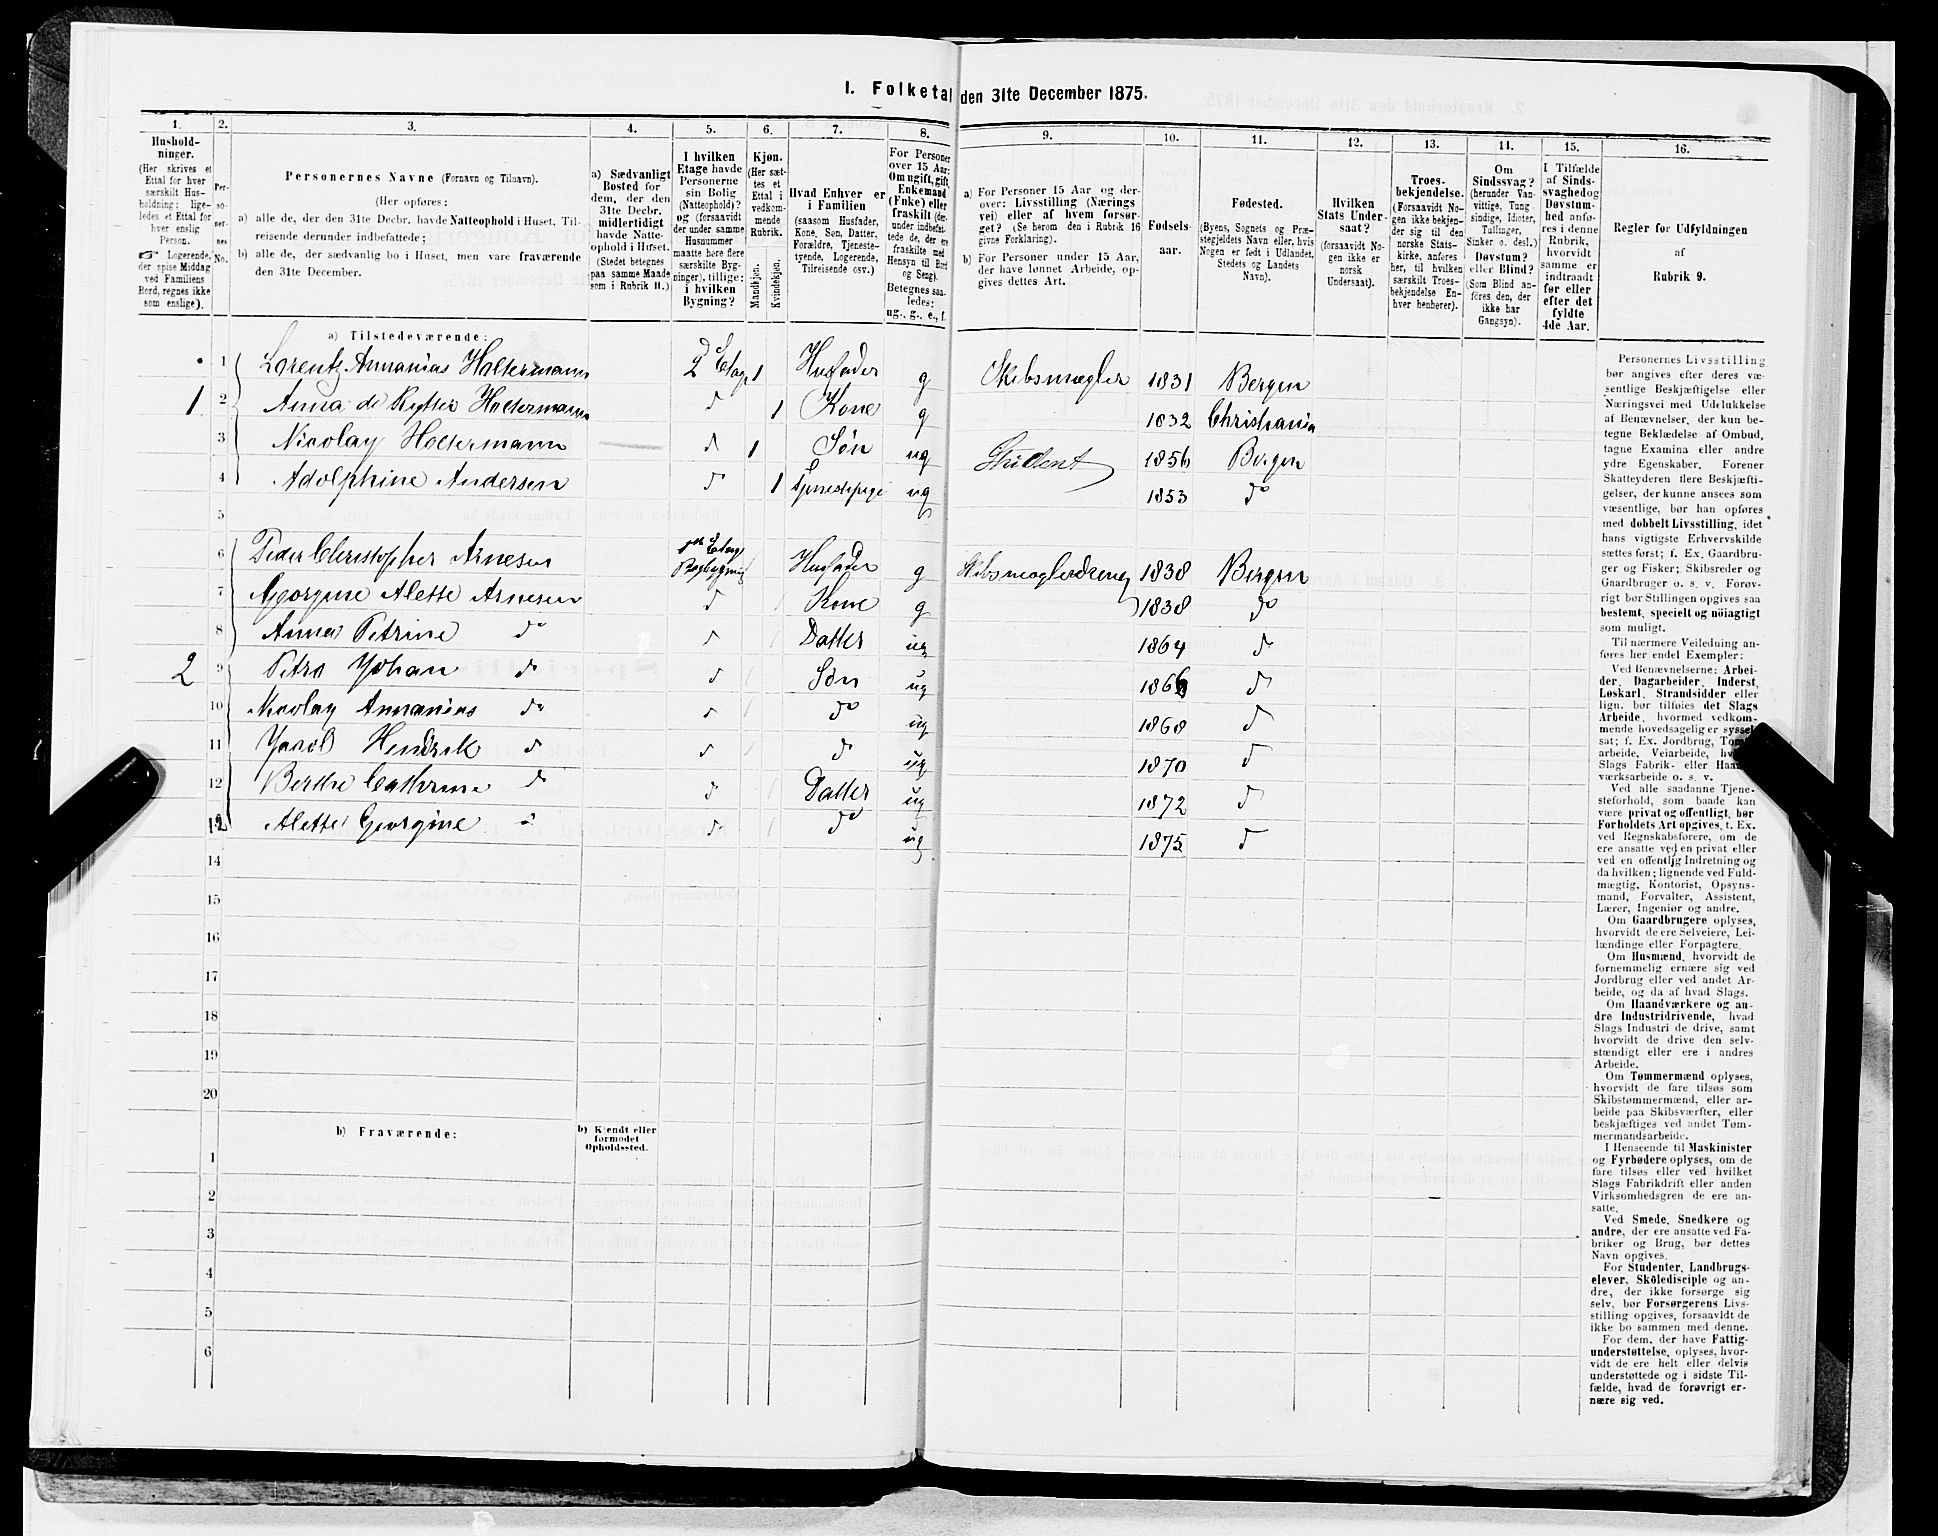 I. Folketal den 31te December 1875.
1.
Hushold-
ninger.
(Her skrives et
Ettal for hver
særskilt Hus-
holdning; lige-
ledes et Ettal for
hver enslig
Person.
Logerende,
der spise Middag
ved Familiens
Bord, regnes ikke
som enslige).
2.
Per-
so-
ner-
nes
No.
3.
Personernes Navne (Fornavn og Tilnavn).
(Her opføres:
a) alle de, der den 31te Decbr. havde Natteophold i Huset, Til-
reisende derunder indbefattede;
b) alle de, der sædvanlig bo i Huset, men vare fraværende
den 31te December.
4.
a) Sædvanligt
Bosted for
dem, der den
31te Decbr.
midlertidigt
havde Natte-
ophold i Huset.
(Stedet betegnes
paa samme Maade
som i Rubrik 11.)
5.
I hvilken
Etage havde
Personerne
sin Bolig
(Natteophold)?
og (forsaavidt
der under samme
Husnummer
maatte høre flere
særskilte Byg-
ninger), tillige:
i hvilken
Bygning?
6.
Kjøn.
(Her sæt-
tes et
Ettal i
vedkom-
mende
Rubrik.
Mandkjøn.
Kvindekjøn.
7.
Hvad Enhver er
i Familien
(saasom Husfader,
Kone, Søn, Datter,
Forældre, Tjeneste-
tyende, Logerende,
Tilreisende osv.)
8.
For Personer
over 15 Aar:
Om ugift, gift,
Enkemand
(Enke) eller
fraskilt (der-
under indbefat-
tede de, der ere
fraskilte med
Hensyn til Bord
og Seng).
Betegnes saa-
ledes:
ug., g., e., f.
9.
a) For Personer 15 Aar og der-
over: Livsstilling (Nærings
vei) eller af hvem forsør-
get? (Se herom den i Rubrik 16
givne Forklaring).
b) For Personer under 15 Aar,
der have lønnet Arbeide, op-
gives dettes Art.
10.
Fødsels-
aar.
11.
Fødested.
(Byens, Sognets og Præ-
stegjeldets Navn eller, hvis
Nogen er født i Udlandet,
Stedets og Landets
Navn).
12.
Hvilken
Stats Under-
saat?
(forsaavidt No-
gen ikke er
norsk
Undersaat).
13.
Troes-
bekjendelse.
(Forsaavidt No-
gen ikke bekjen-
der sig til den
norske Stats-
kirke, anføres
her, til hvilken
særskilt Troes-
bekjendelse En-
hver henhører).
14.
Om
Sindssvag?
(herunder Van-
vittige, Tung-
sindige, Idioter,
Tullinger,
Sinker o. desl.)
Døvstum?
eller Blind?
(Som Blind an-
føres den, der
ikke har
Gangsyn).
15.
I Tilfælde
af Sinds-
svaghed og
Døvstum-
hed anfø-
res i denne
Rubrik,
hvorvidt
samme er
indtraadt
før eller
efter det
fyldte
4de Aar.
16.
Regler for Udfyldningen
af
Rubrik 9.
a) Tilstedeværende:
1 Lorentz Annanias Holtermann 2d Etage 1 Husfader g Skibsmægler 1831 Bergen
1 2 Anna de Rytter Holtermann d 1 Kone g 1832 Christiania
3 Nicolay Holtermann d 1 Søn ug Student 1856 Bergen
4 Adolphine Andersen d 1 Tjenestepige ug 1853 do
5
6 Peder Christopher Arnesen Etage Bagbygning Husfader g Skibsmæglerdreng 1838 Bergen
7 Georgine Alette Arnesen d Kone g 1838 do
8 Anna Petrine do d Datter ug 1864 d
2 9 Petro Johan do d Søn ug 1866 d
10 Nicolay Annanias do d do ug 1868 d
11 Jacob Hendrik d d d ug 1870 d
12 Berthe Cathrine d d Datter ug 1872 d
Alette Georgine d d do ug 1875 d
14
15
16
17
18
19
20
b) Fraværende:
b) Kjendt eller
formodet
Opholdssted.
1
2
3
4
5
6
Personernes Livsstilling
bør angives efter deres væ-
sentlige Beskjæftigelse eller
Næringsvei med Udelukkelse
af Benævnelser, der kun be-
tegne Beklædelse af Ombud,
tagne Examina eller andre
ydre Egenskaber. Forener
Skatteyderen flere Beskjæfti-
gelser, der kunne ansees som
væsentlige, bør han opføres
med dobbelt Livsstilling, idet
hans vigtigste Erhvervskilde
sættes først; f. Ex. Gaardbru-
ger og Fisker; Skibsreder og
Gaardbruger o. s. v. Forøv-
rigt bør Stillingen opgives saa
bestemt, specielt og nöiagtigt
som muligt.
Til nærmere Veiledning an-
føres her endel Exempler:
Ved Benævnelserne: Arbei-
der, Dagarbeider, Inderst,
Løskarl, Strandsidder eller
lign. bør tilføies det Slags
Arbeide, hvormed vedkom-
mende hovedsagelig er syssel-
sat; f. Ex. Jordbrug, Tom-
arbeide, Veiarbeide,
Slags Fabrik- eller Haand-
værksarbeide o. s. v.
Ved alle saadanne Tjene-
steforhold, som baade kan
være privat og offentligt, bør
Forholdets Art opgives, t. Ex.
ved Regnskabsførere, om de
ere ansatte ved en privat eller
ved en offentlig Indretning og
da hvilken; lignende ved Fuld-
mægtig, Kontorist, Opsyns-
mand, Forvalter, Assistent,
Lærer, Ingeniør og andre.
Om Gaardbrugere oplyses,
hvorvidt de ere Selveiere, Lei-
lændinge eller Forpagtere.
Om Husmænd, hvorvidt de
fornemmelig ernære sig ved
Jordbrug eller ved andet Ar-
beide, og da af hvad Slags.
Om Haandværkere og an-
dre Industridrivende, hvad
Slags Industri de drive, samt
hvorvidt de drive den selv-
stændigt eller ere i andres
Arbeide.
Om Tømmermænd oplyses,
hvorvidt de fare tilsøs som
Skibstømmermænd, eller ar-
beide paa Skibsværfter, eller
beskjæftiges ved andet Tøm-
mermandsarbeide.
I Henseende til Maskinister
og Fyrbødere oplyses, om de
fare tilsøs eller ved hvilket
Slags Fabrikdrift eller anden
Virksomhedsgren de ere an-
satte.
Ved Smede, Snedkere og
andre, der ere ansatte ved Fa-
briker og Brug, bør dettes
Navn opgives.
For Studenter, Landbrugs-
elever, Skoledisciple og an-
dre, der ikke forsørge sig
selv, bør Forsørgerens Livs-
stilling opgives, forsaavidt de
ikke bo sammen med denne.
For dem, der have Fattig-
understøttelse, oplyses, hvor-
vidt de ere helt eller delvis
understøttede og i sidste Til-
fælde, hvad de forøvrigt er-
nære sig ved.